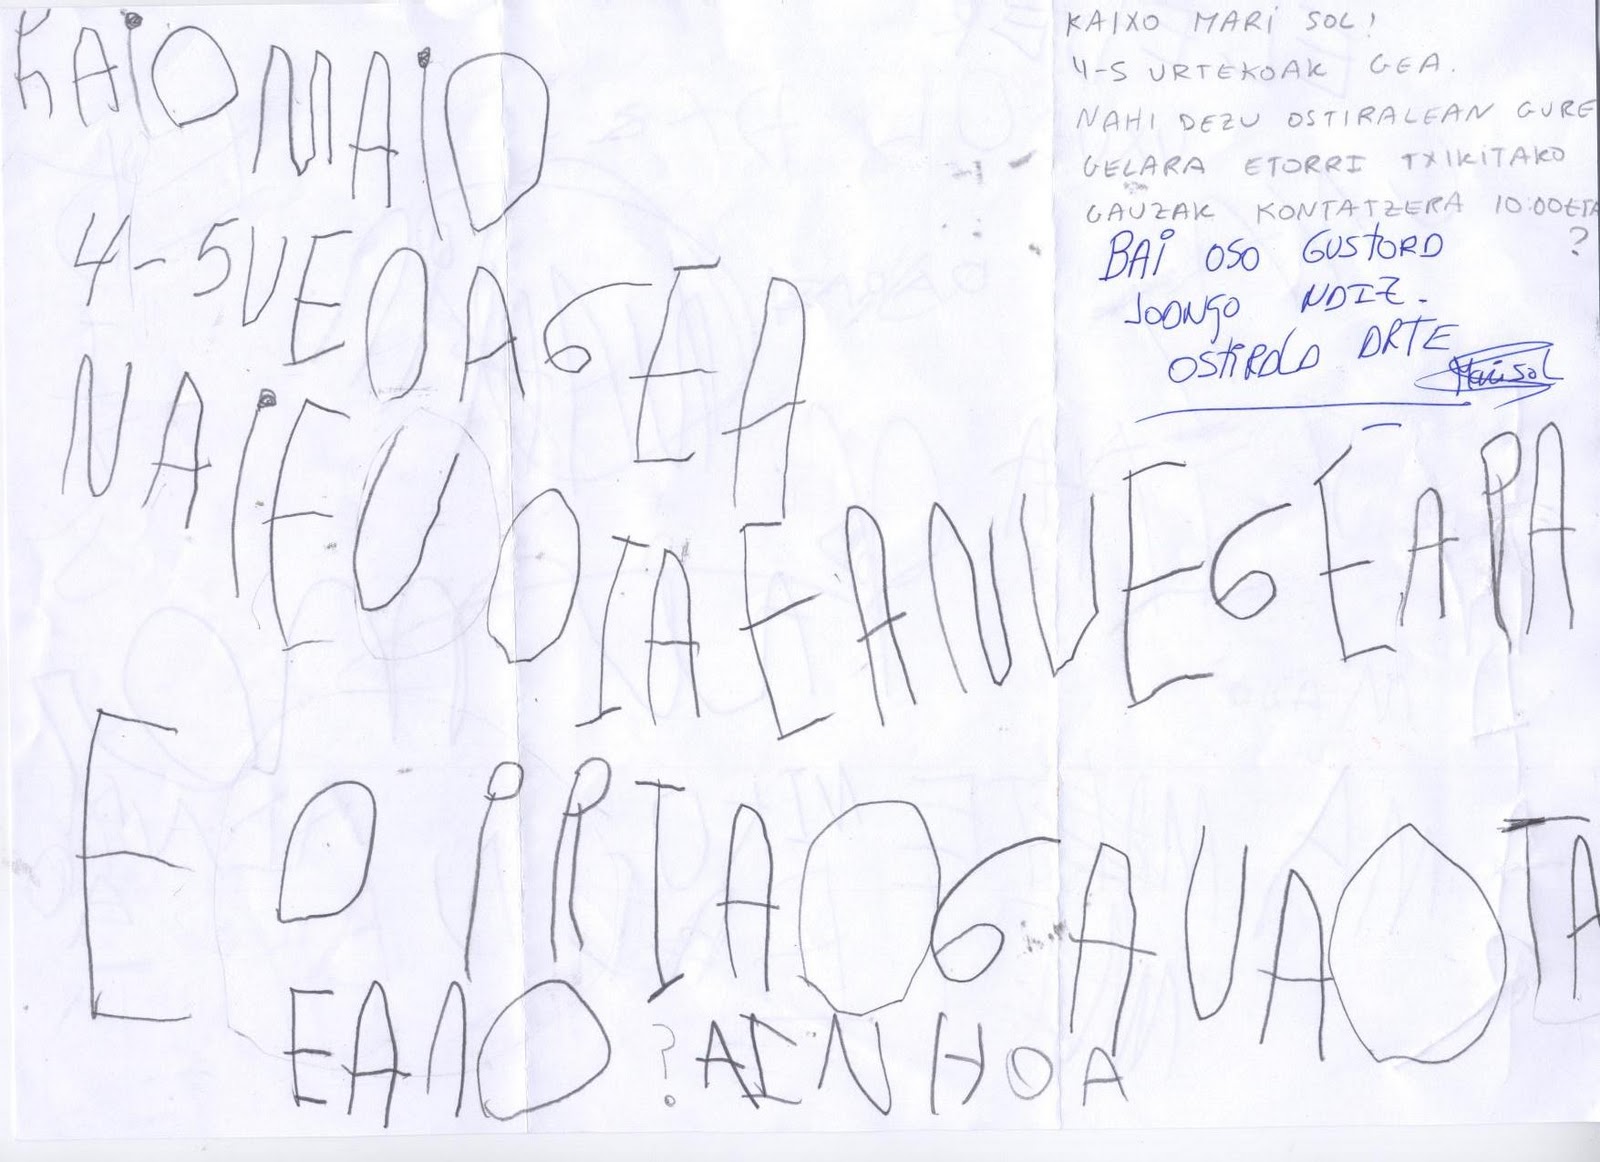 KAiO MAiO
4-5 UEOAGEA
NAiEU OIAEANUEGEAPA
EO iRIAOGAUAOIA
EA10 ? AINHOA
KAIXO MARI SOL!
4-5 URTEKOAK GEA.
NAHI DEZU OSTIRALEAN GURE
GELARA ETORRI TXIKITAKO
GAUZAK KONTATZERA 10:00ETAN
?
BAi OSO GUSTORA
JOANGO NAIZ.
OSTIRALA ARTE
Marisol